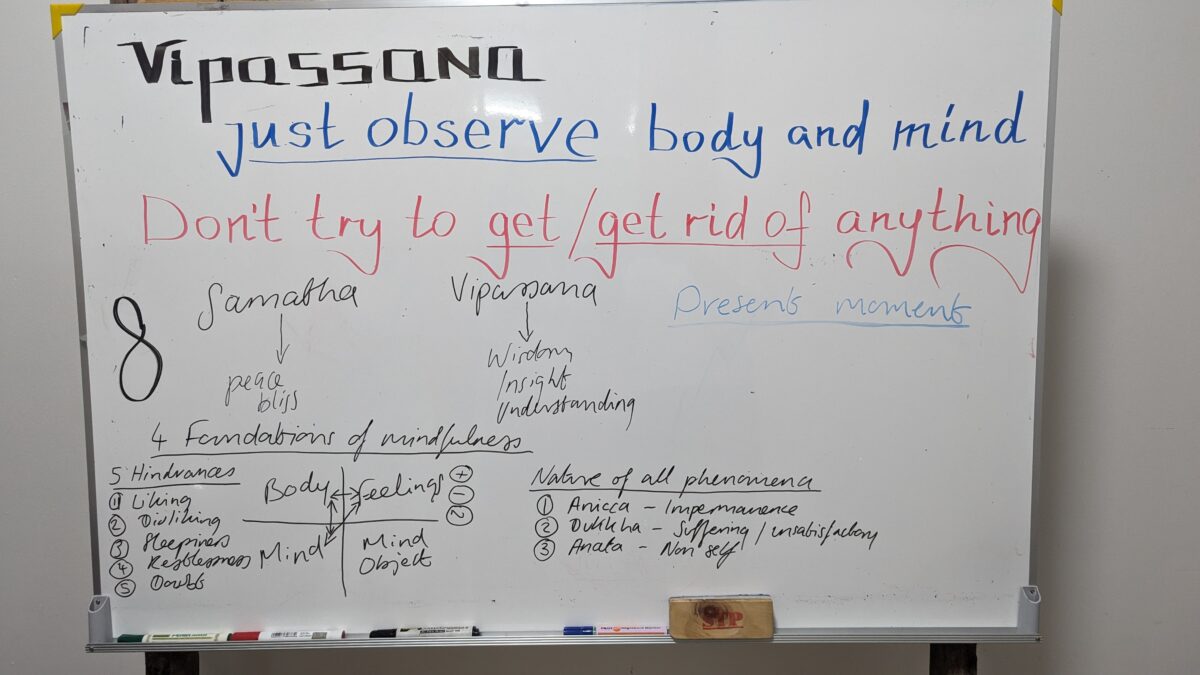 Vipassana
just observe body and mind
Don't try to get / get rid of anything
8
Samatha
peace
bliss
Vipassana
Wisdom
Insight
Understanding
Present moment
4 Foundations of mindfulness
5 Hindrances
① Liking
② Disliking
③ Sleepiness
④ Restlessness
⑤ Doubt
Body
Feelings
+
-
~
Mind
Mind
Object
Nature of all phenomena
① Anicca - Impermanence
② Dukkha - Suffering / unsatisfactory
③ Anata - Non self
STP